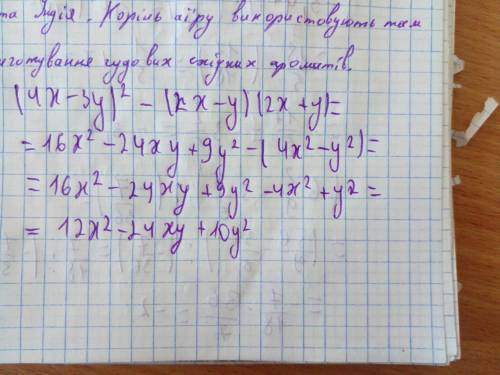 та Індія. Корінь аїру використовують там
готування чудових східних ароматів.
(4x-3y)² - (2x-y)(2x+y)=
=16x²-24xy+9y²-(4x²-y²)=
=16x²-24xy+9y²-4x²+y²=
= 12x²-24xy+10y²